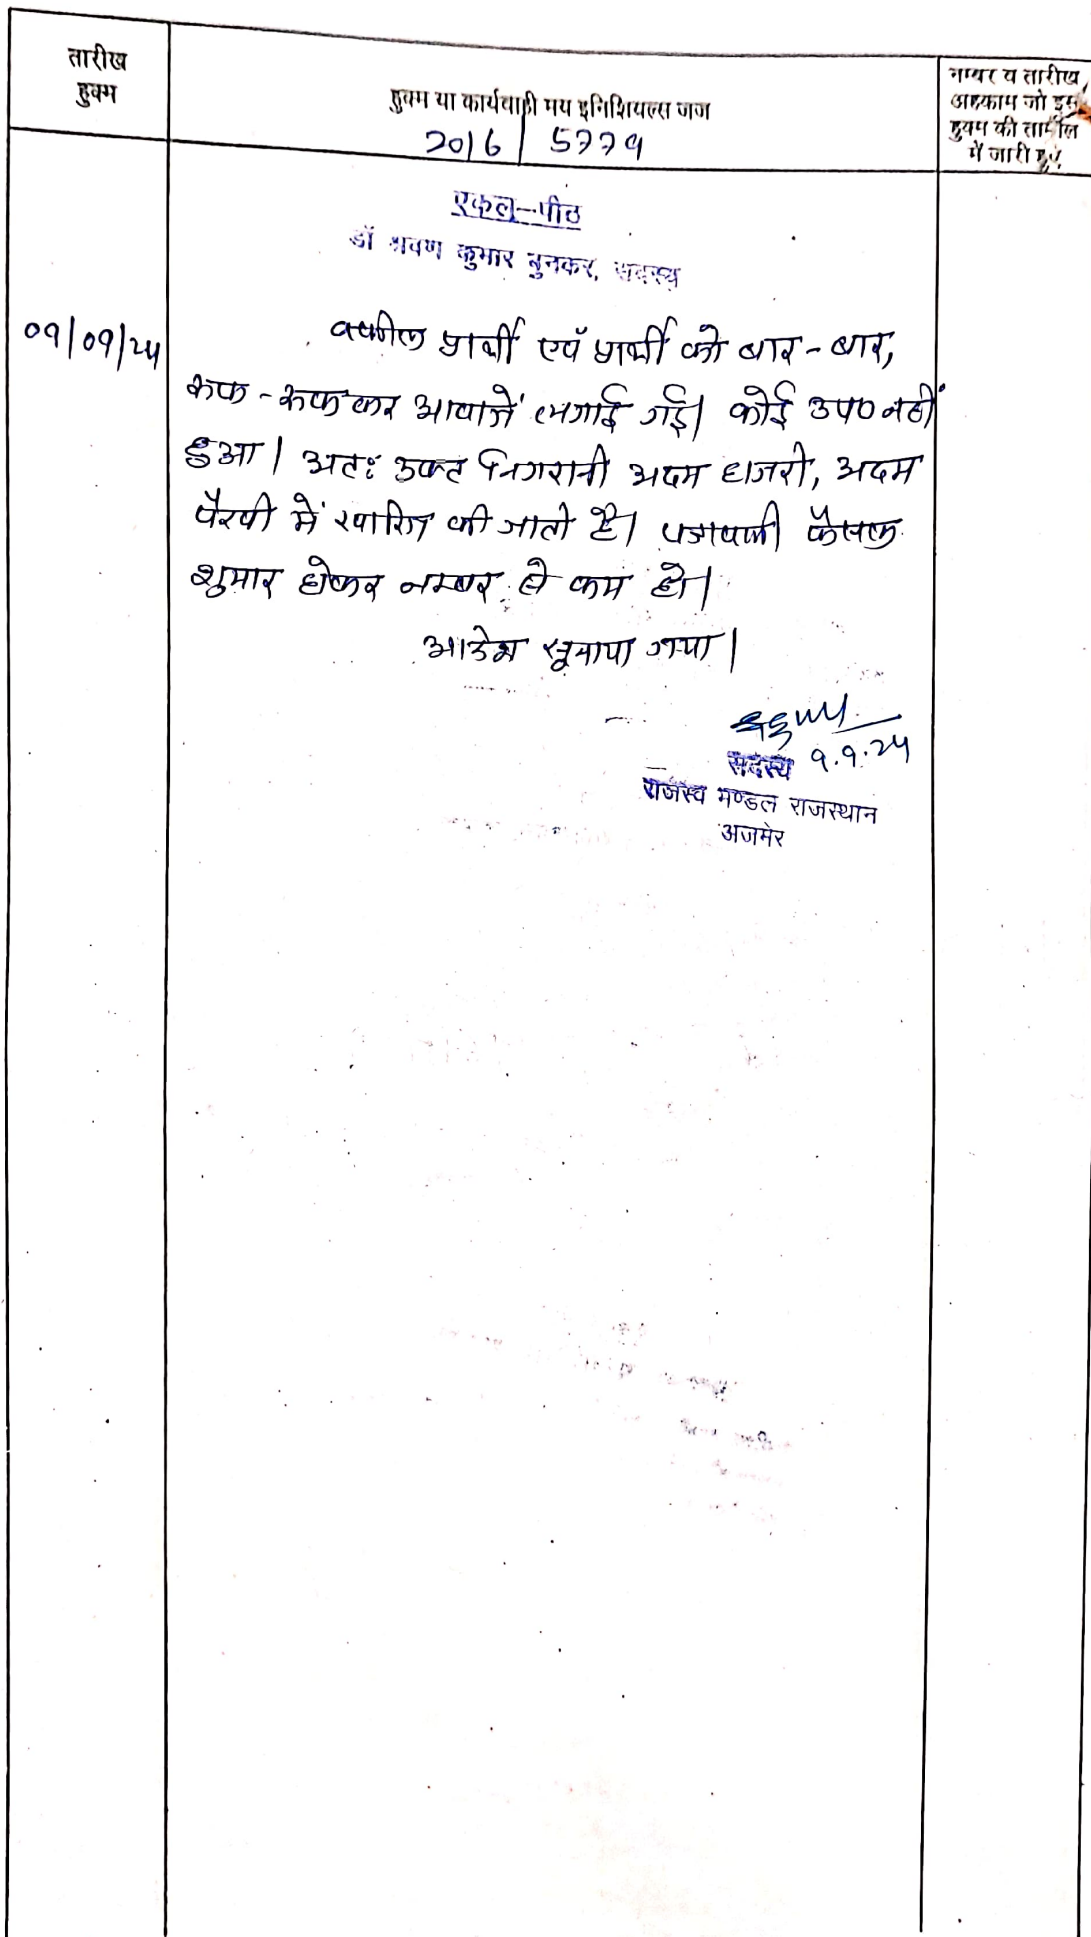 तारीख
हुक्म
हुक्म या कार्यवाही मय इनिशियल्स जज
नम्बर व तारीख
अहकाम जो इस
हुक्म की तामील
में जारी हुए
2016 / 5779
एकल-पीठ
डॉ श्रवण कुमार बुनकर, सदस्य
09/09/24
वकील प्रार्थी एवं प्रार्थी को बार-बार,
रूक-रूककर आवाजें लगाई गई। कोई उप० नहीं
हुआ। अतः उक्त निगरानी अदम हाजरी, अदम
पैरवी में खारिज की जाती है। पत्रावली फैसल
शुमार होकर नम्बर से कम हो।
आदेश सुनाया गया।
9.9.24
सदस्य
राजस्व मण्डल राजस्थान
अजमेर